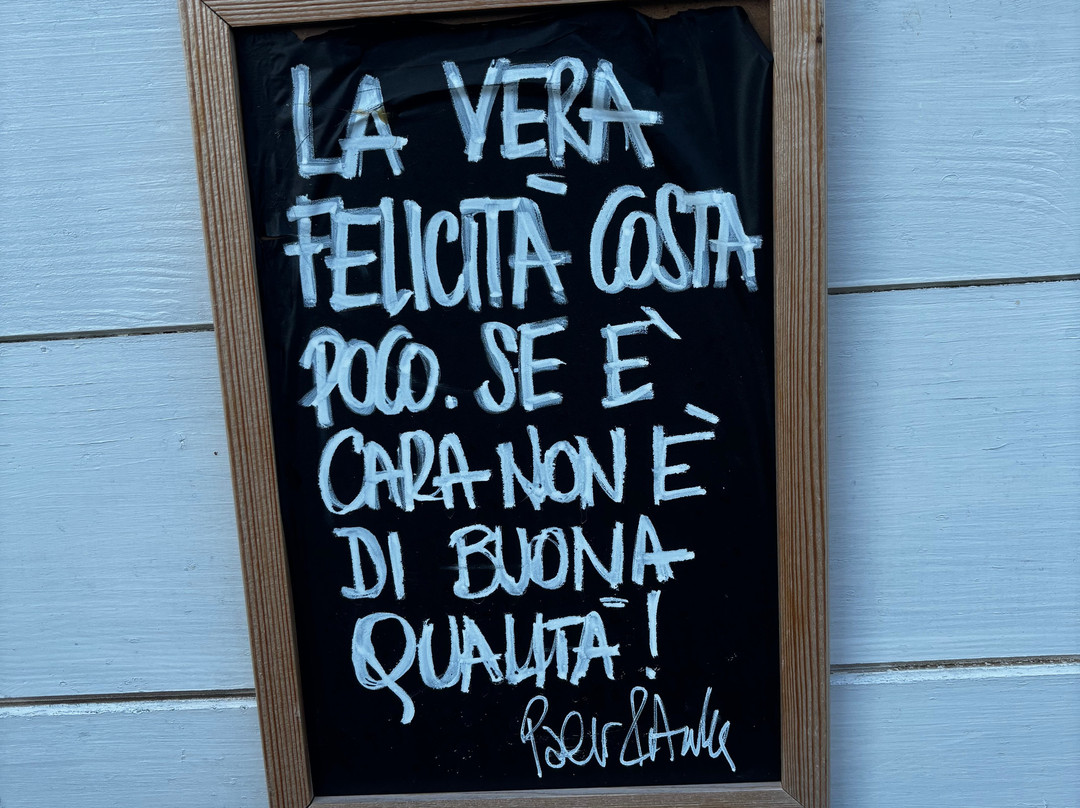 LA VERA
FELICITÀ COSTA
POCO. SE È
CARA NON È
DI BUONA
QUALITÀ!